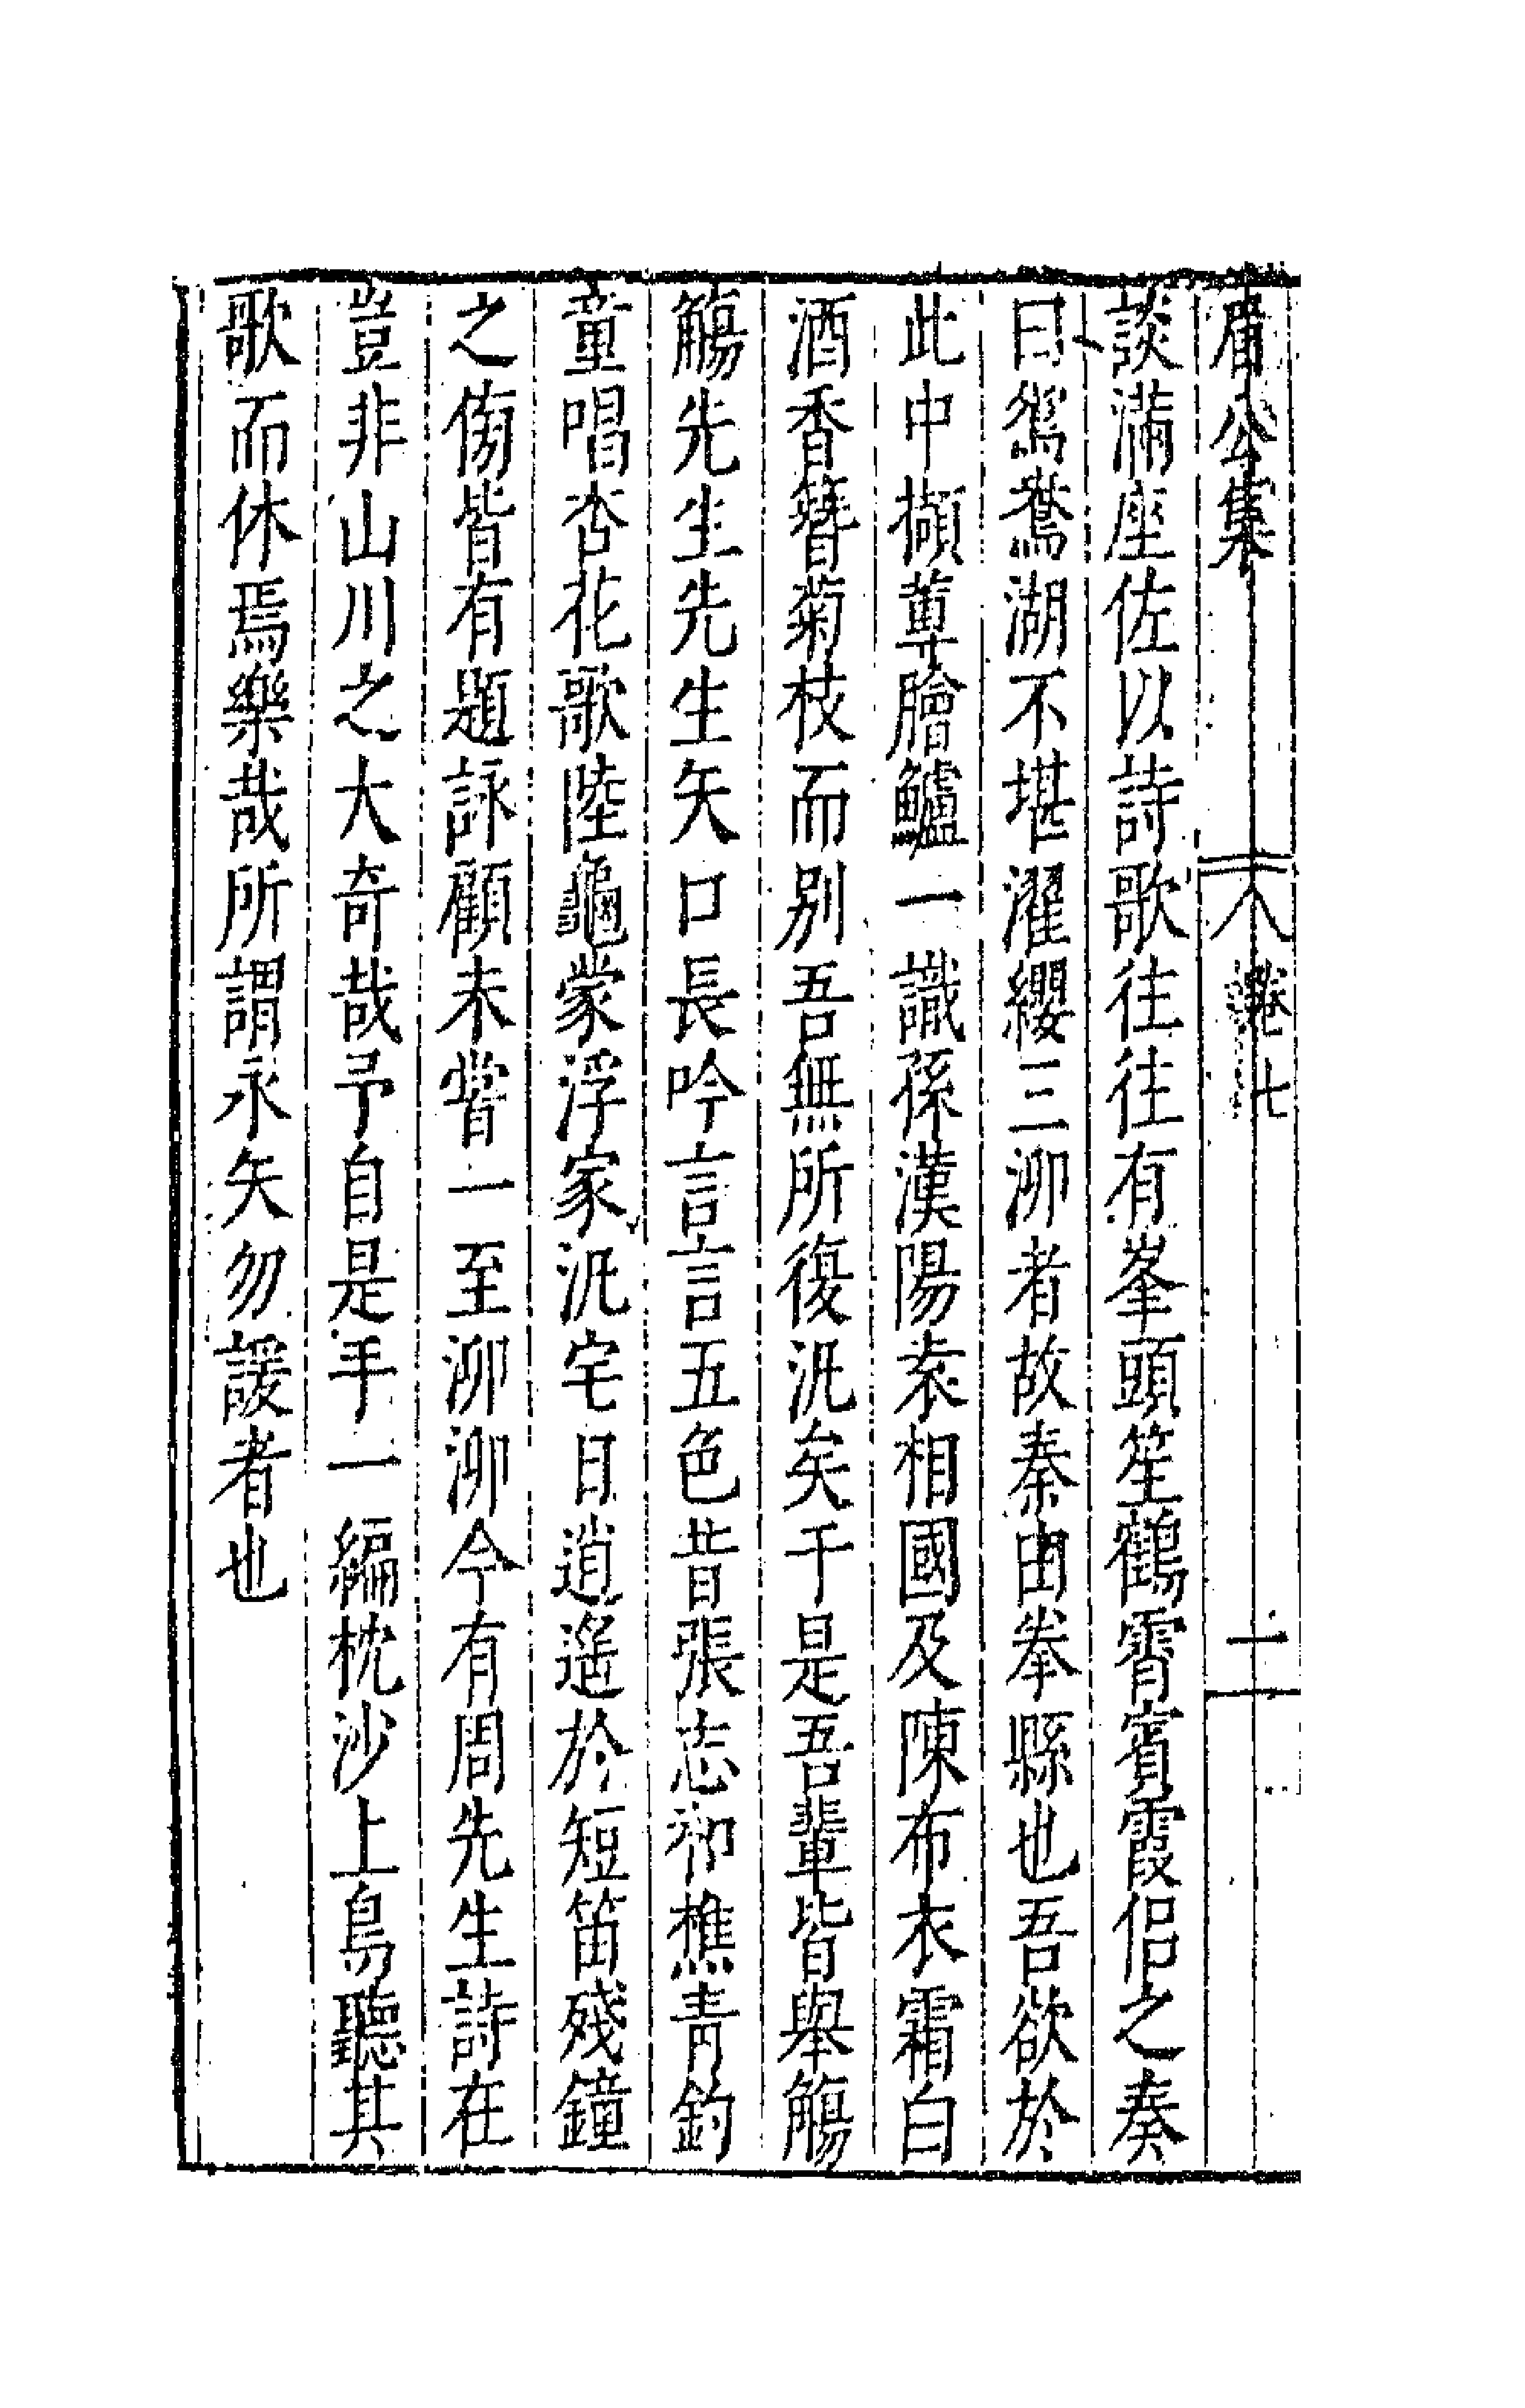 眉公集
卷七
一
談滿座佐以詩歌往往有峯頭笙鶴霄賓霞侶之奏
曰鴛鴦湖不堪濯纓三泖者故秦由拳縣也吾欲於
此中擷蓴膾鱸一識孫漢陽袁相國及陳布衣霜白
酒香簪菊枝而別吾無所復汎矣于是吾輩皆舉觴
觴先生先生矢口長吟言言五色昔張志和樵青釣
童唱杏花歌陸龜蒙浮家汎宅日逍遙於短笛殘鐘
之傍皆有題詠顧未嘗一至泖泖今有周先生詩在
豈非山川之大奇哉予自是手一編枕沙上鳥聽其
歌而休焉樂哉所謂永矢勿諼者也